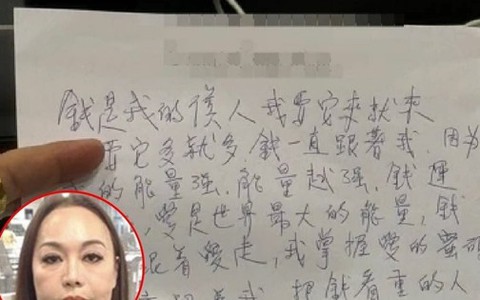 錢是我的僕人 我要它來就來
要它多就多. 錢一直跟著我. 因為
的能量强. 能量越强. 錢運
愛是世界最大的能量, 錢
跟着愛走, 我掌握愛的
把錢看重的人